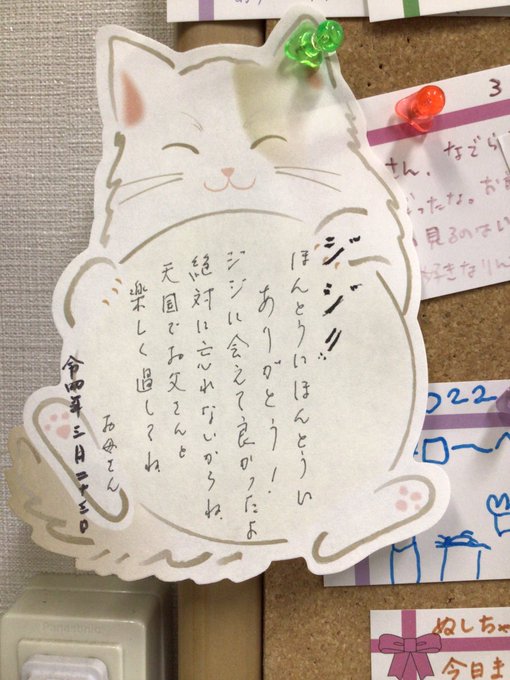 ジジ!!
ほんとうにほんとうに
ありがとう!
ジジに会えて良かったよ
絶対に忘れないからね
天国でお父さんと
楽しく過してね
お母さん
令四年三月二十三日
3
さん、なでら
ったな。お
見るのない
好きなりん
2022
ローへ
ぬしちゃ
今日ま
Panasonic